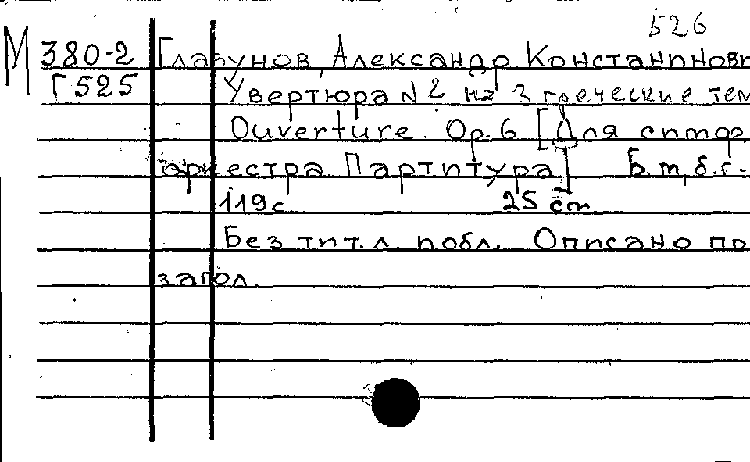 526
М 380-2 Глазунов, Александр Константинови
Г525 Увертюра N 2 на 3 греческие тем
Ouverture. Op. 6 [Для симф.
оркестра. Партитура] Б.м., б.г.
119 с. 25 см
Без тит. л. и обл. Описано по
загол.